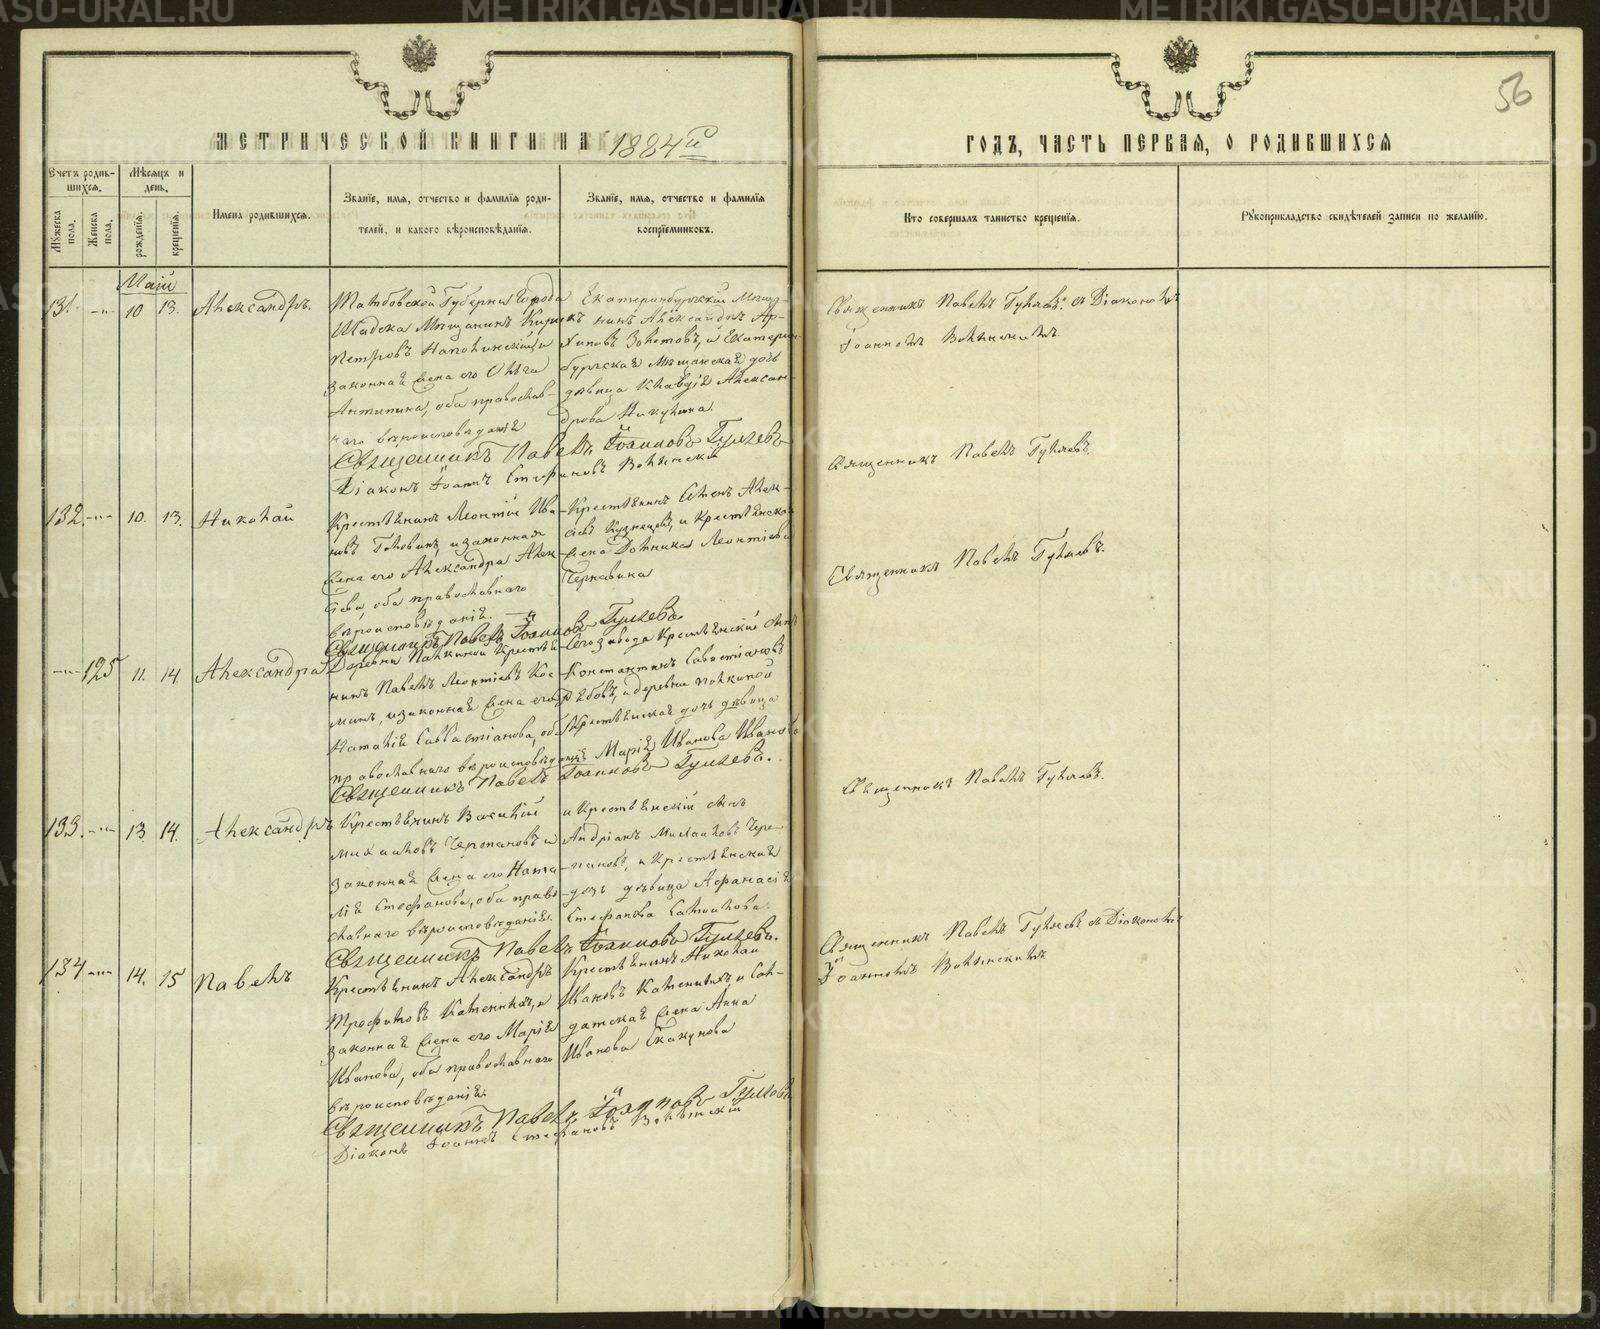 56
МЕТРИЧЕСКОЙ КНИГИ НА 1884й
ГОДЪ, ЧАСТЬ ПЕРВАЯ, О РОДИВШИХСЯ
Счетъ родившихся.
Мѣсяцъ и день.
Имена родившихся.
Званіе, имя, отчество и фамилія родителей, и какого вѣроисповѣданія.
Званіе, имя, отчество и фамилія воспріемниковъ.
Кто совершалъ таинство крещенія.
Рукоприкладство свидѣтелей записи по желанію.
Мужеска пола.
Женска пола.
рожденія.
крещенія.
Маій
131. 10 13. Александръ.
Тамбовской Губерніи города
Шадска Мѣщанинъ
Петровъ
законная жена его Ольга
Антипина, оба православ-
наго вѣроисповѣданія
Екатеринбургскій Мѣща-
нинъ Александръ Ар-
хиповъ Золотовъ, и Екатерин-
бургская Мѣщанская дочь
дѣвица Клавдія Алексан-
дрова Никулина.
Священникъ Павелъ Гуляевъ съ Діакономъ
Іоанномъ Волынскимъ
Священникъ Павелъ Іоанновъ Гуляевъ
Діаконъ Іоаннъ Стефановъ Волынскій
132. 10. 13. Николай
Крестьянинъ Леонтій Ива-
новъ Головинъ, и законная
жена его Александра Алек-
сіева, оба православнаго
вѣроисповѣданія.
Крестьянинъ Алек-
сіевъ Кузнецовъ, и Крестьянская
жена Леонтіева
Чернавина
Священникъ Павелъ Гуляевъ.
Священникъ Павелъ Іоанновъ Гуляевъ.
125 11. 14. Александра
Деревни Палкиной Крестья-
нинъ Павелъ Леонтіевъ Кос-
минъ, и законная жена его
Наталія Савастіанова, оба
православнаго вѣроисповѣданія
Сегозавода Крестьянскій сынъ
Константинъ Савастіановъ
Рябовъ, и деревни Палкиной
Крестьянская дочь дѣвица
Марія Иванова
Священникъ Павелъ Гуляевъ.
Священникъ Павелъ Іоанновъ Гуляевъ.
133. 13. 14. Александръ
Крестьянинъ Василій
Михаиловъ Черепановъ и
законная жена его Ната-
лія Стефанова, оба право-
славнаго вѣроисповѣданія.
и Крестьянскій сынъ
Андріанъ Михаиловъ Чере-
пановъ, и Крестьянская
дочь дѣвица Афанасія
Стефанова
Священникъ Павелъ Гуляевъ.
Священникъ Павелъ Іоанновъ Гуляевъ.
134 14. 15 Павелъ
Крестьянинъ Александръ
Трофимовъ Каменныхъ, и
законная жена его Марія
Иванова, оба православнаго
вѣроисповѣданія.
Крестьянинъ Николай
Ивановъ Каменныхъ, и Сол-
датская жена Анна
Иванова Скакунова
Священникъ Павелъ Гуляевъ съ Діакономъ
Іоанномъ Волынскимъ
Священникъ Павелъ Іоанновъ Гуляевъ
Діаконъ Іоаннъ Стефановъ Волынскій
METRIKI.GASO-URAL.RU